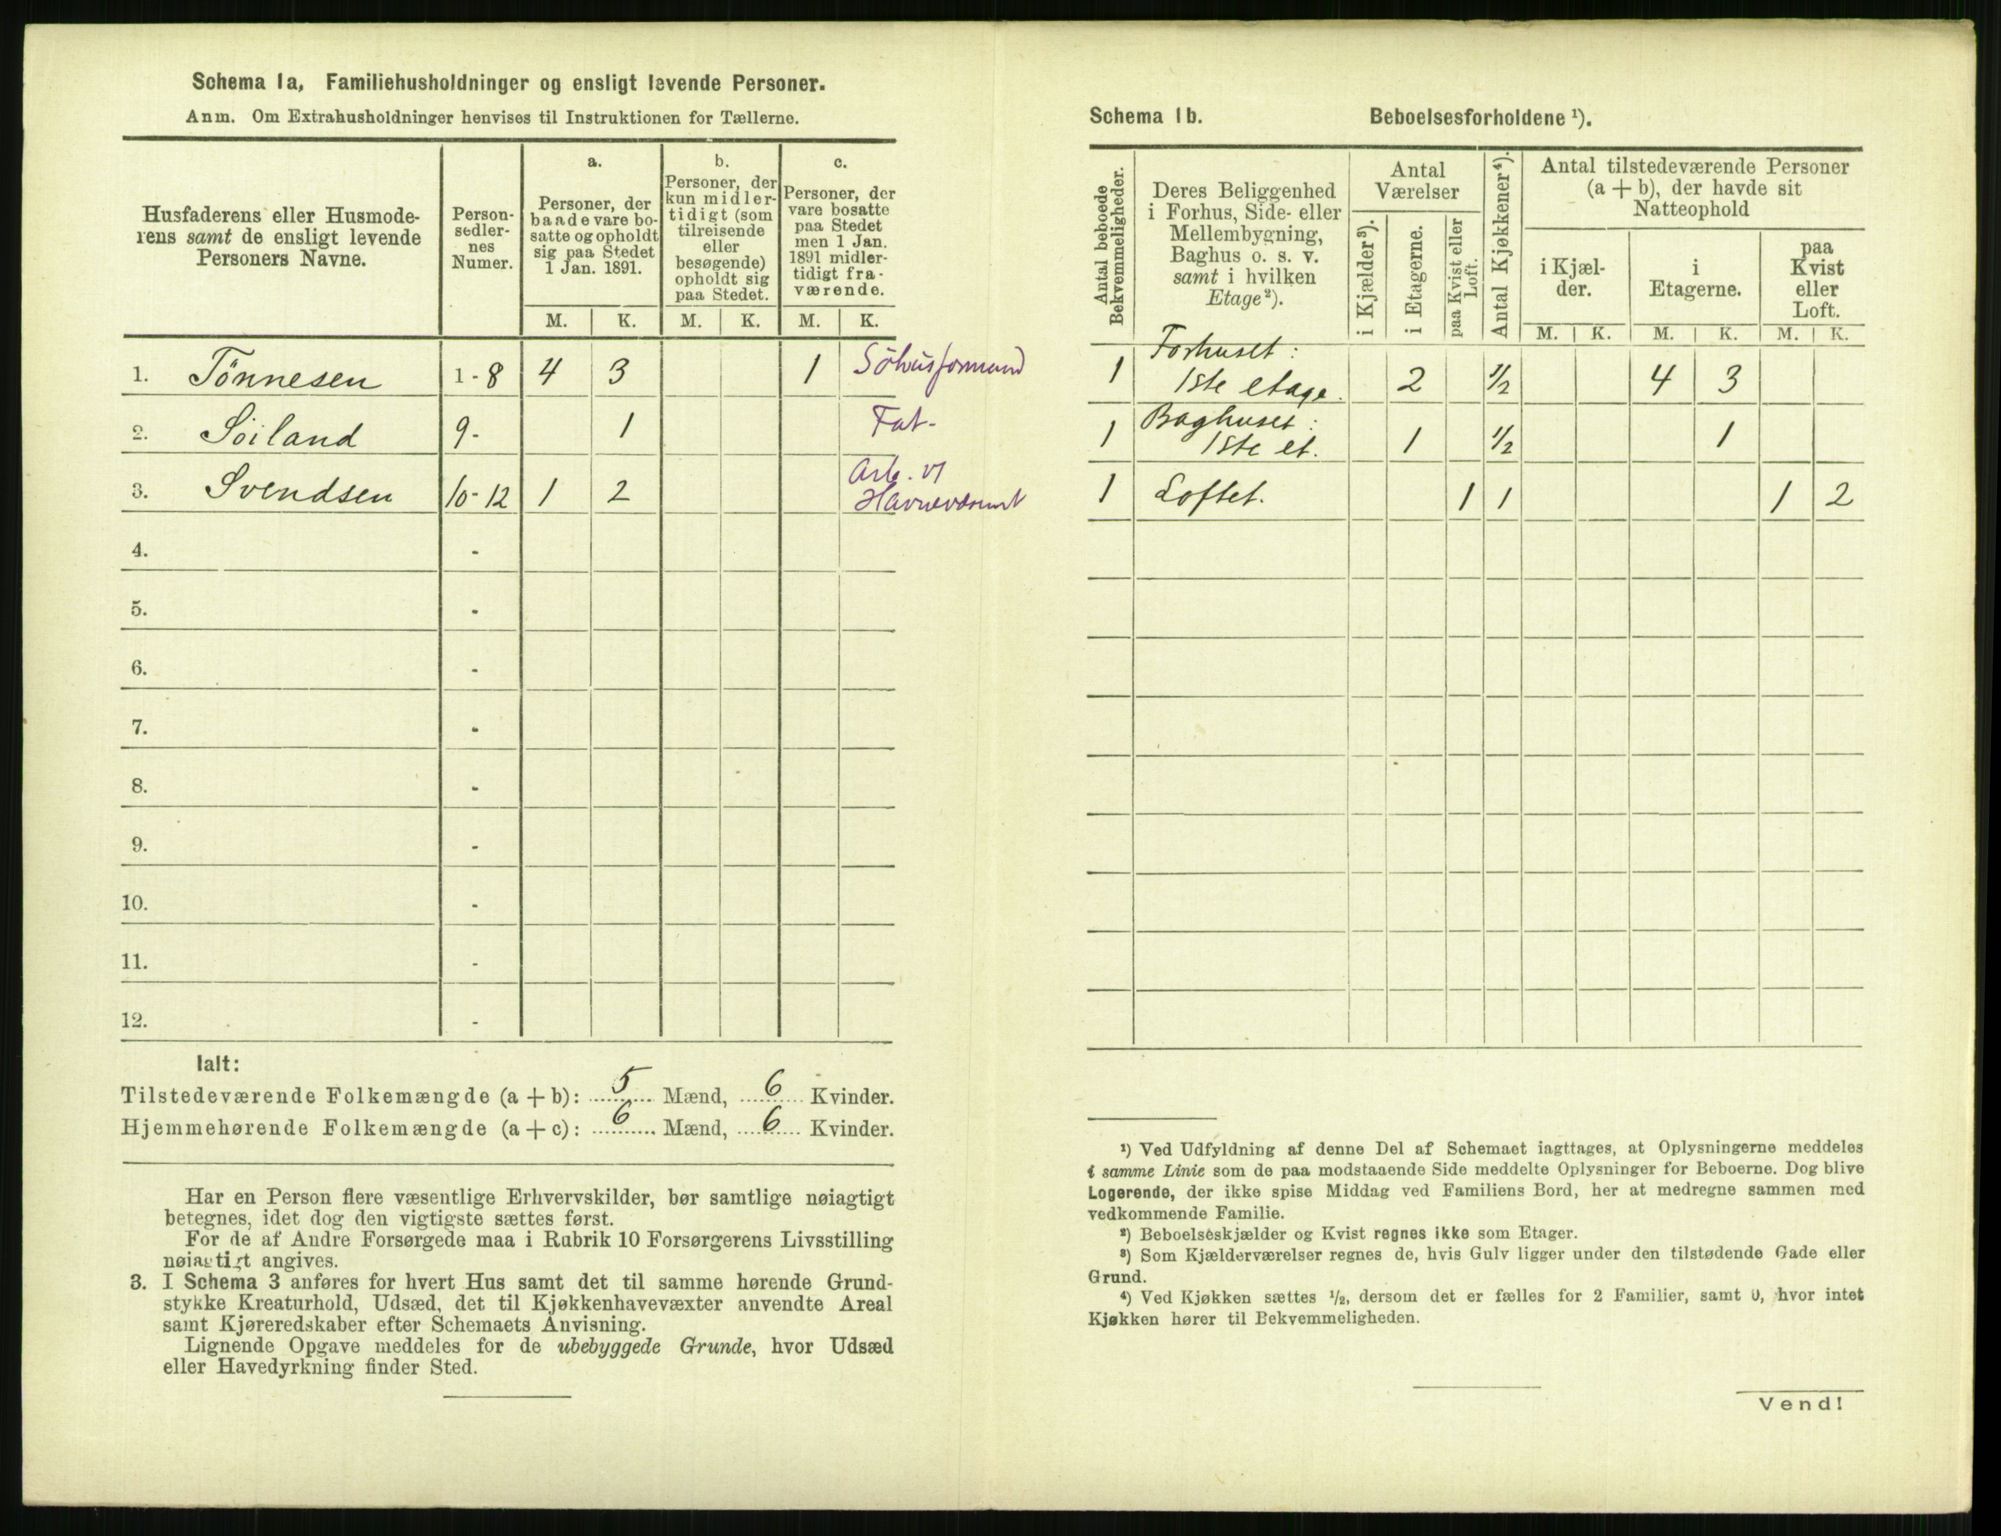 Schema 1a, Familiehusholdninger og ensligt levende Personer.
Anm. Om Extrahusholdninger henvises til Instruktionen for Tællerne.
Husfaderens eller Husmode-
rens samt de ensligt levende
Personers Navne.
Person-
sedler-
nes
Numer.
a.
Personer, der
baade vare bo-
satte og opholdt
sig paa Stedet
1 Jan. 1891.
b.
Personer, der
kun midler-
tidigt (som
tilreisende
eller
besøgende)
opholdt sig
paa Stedet.
c.
Personer, der
vare bosatte
paa Stedet
men 1 Jan.
1891 midler-
tidigt fra-
værende.
M. K. M. K. M. K.
1. Tönnesen 1-8 4 3 1
2. Soiland 9- 1 Fat-
3. Svendsen 10-12 1 2 Arb. v/
4. -
5. -
6. -
7. -
8. -
9. -
10. -
11. -
12. -
Ialt:
Tilstedeværende Folkemængde (a + b): 5 Mænd, 6 Kvinder.
Hjemmehørende Folkemængde (a + c): 6 Mænd, 6 Kvinder.
Har en Person flere væsentlige Erhvervskilder, bør samtlige nøiagtigt
betegnes, idet dog den vigtigste sættes først.
For de af Andre Forsørgede maa i Rubrik 10 Forsørgerens Livsstilling
nøiagtigt angives.
3. I Schema 3 anføres for hvert Hus samt det til samme hørende Grund-
stykke Kreaturhold, Udsæd, det til Kjøkkenhavevæxter anvendte Areal
samt Kjøreredskaber efter Schemaets Anvisning.
Lignende Opgave meddeles for de ubebyggede Grunde, hvor Udsæd
eller Havedyrkning finder Sted.
Schema 1b. Beboelsesforholdene ¹).
Antal beboede
Bekvemmeligheder.
Deres Beliggenhed
i Forhus, Side- eller
Mellembygning,
Baghus o. s. v.
samt i hvilken
Etage²).
Antal
Værelser
i Kjælder³).
i Etagerne.
paa Kvist eller
Loft.
Antal Kjøkkener⁴).
Antal tilstedeværende Personer
(a + b), der havde sit
Natteophold
i Kjæl-
der.
i
Etagerne.
paa
Kvist
eller
Loft.
M. K. M. K. M. K.
Forhuset:
1 1ste etage. 2 1/2 4 3
Baghuset:
1 1ste et. 1 1/2 1
1 Loftet. 1 1 1 2
¹) Ved Udfyldning af denne Del af Schemaet iagttages, at Oplysningerne meddeles
i samme Linie som de paa modstaaende Side meddelte Oplysninger for Beboerne. Dog blive
Logerende, der ikke spise Middag ved Familiens Bord, her at medregne sammen med
vedkommende Familie.
²) Beboelseskjælder og Kvist regnes ikke som Etager.
³) Som Kjælderværelser regnes de, hvis Gulv ligger under den tilstødende Gade eller
Grund.
⁴) Ved Kjøkken sættes 1/2, dersom det er fælles for 2 Familier, samt 0, hvor intet
Kjøkken hører til Bekvemmeligheden.
Vend!